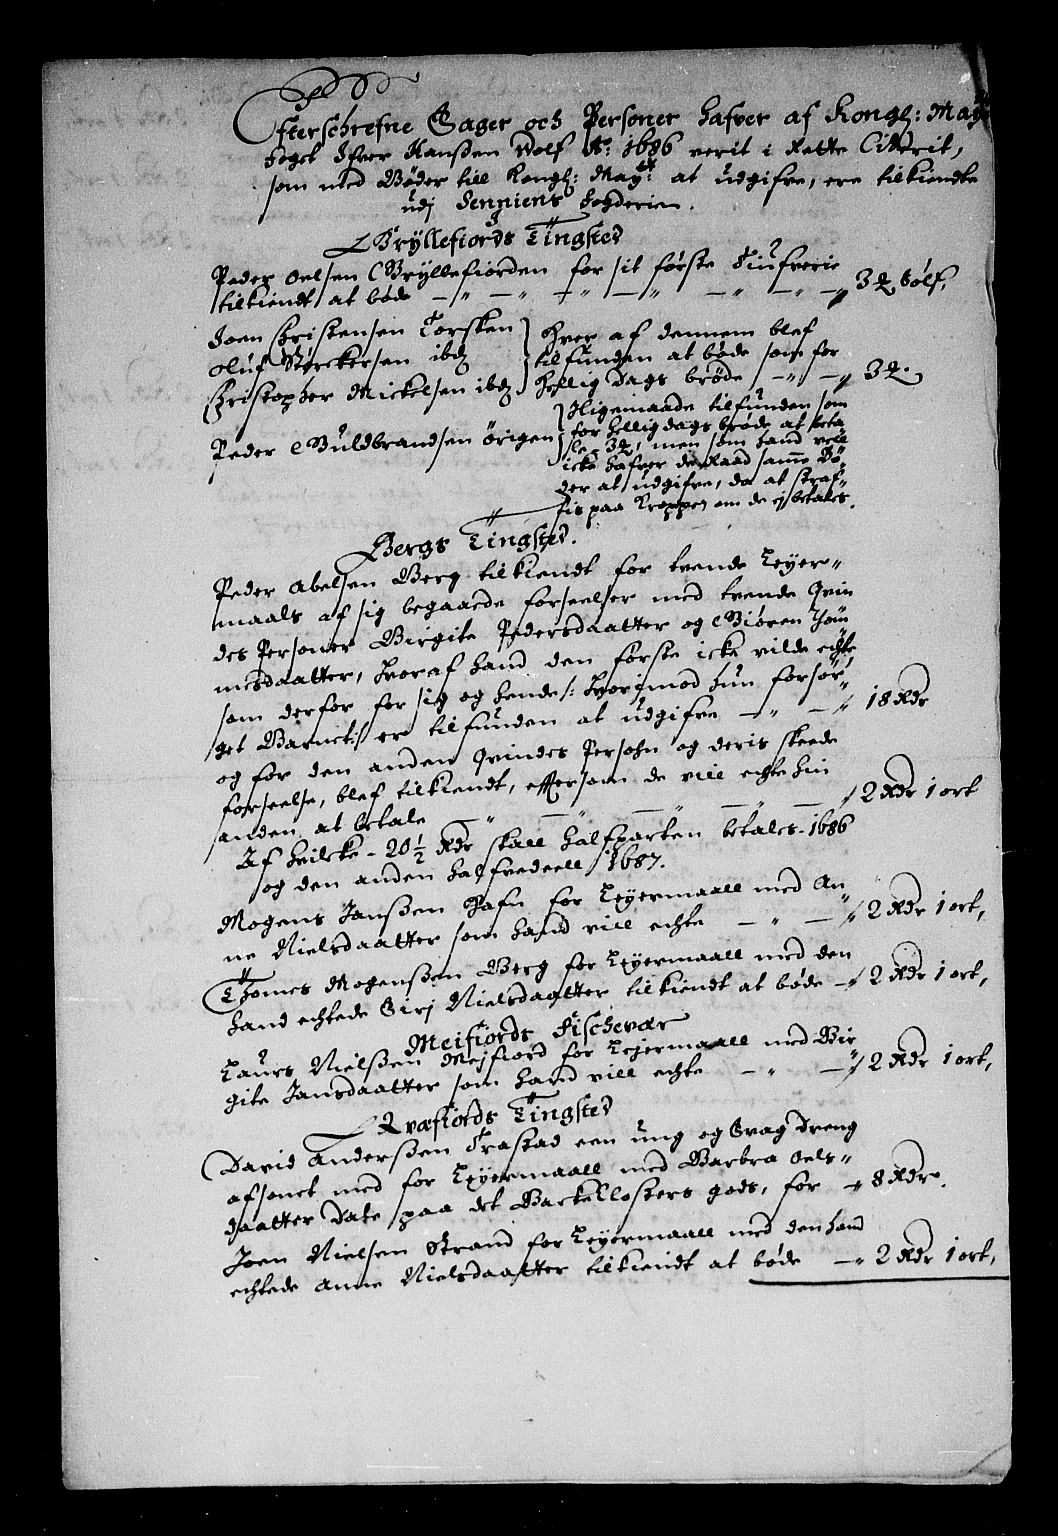 Efterschrefne Sager och Personer hafver af Kongl: May:
foget Ifver Hanssen Wolf Ao: 1686 verit i Rette Citterit,
som med Bøder till Kongl: Mayt: at udgifve, ere tilkiendte
udj Senniens fogderie.
Gryllefiords Tingsted
Peder Oelsen Gryllefiorden for sit første
tilkiendt at bøde - " - " - " - " - 3 sølf.
Joen Christensen Torsken
Oluf Størckersen ibd
Christopher Mickelsen ibd
Hver af dennem blef
tilfunden at bøde som for
hellig dags brøde - " - 3
Peder Guldbrandsen Ørigen
Iligemaade tilfunden som
for hellig dags brøde at beta
le - 3, men som hand vell
icke hafver de Raad samme Bø
der at udgifve, da at straf-
fis paa Kroppen om de ej betales.
Bergs Tingsted.
Peder Abelsen Berg tilkiendt for tvende Leyer-
maals af sig begaaede forseelser med tvende Qvin
des Personer Birgite Pedersdaatter og Giøren
mesdaatter, hvoraf hand den første icke vilde echte,
som derfor for sig og hende /: hvorimod hun forsør-
get Barnet :/ er tilfunden at udgifve - " - 18 Rdr
og for den anden Qvindes Persohn og deris skeede
forseelse, blef tilkiendt, effersom de vill echte hin
anden at betale - " - " - " - 2 Rdr 1 ort
Af hvilcke - 20½ Rdr skall halfparten betales - 1686
og den anden halfvedeell 1687.
Mogens Janssen Hafn for Leyermaall med An
ne Nielsdaatter som hand vill echte - " - 2 Rdr 1 ort,
Thomes Mogenssen Berg for Leyermaall med den
hand echtede Sirj Nielsdaatter tilkiendt at bøde - 2 Rdr 1 ort,
Meifiords Fischevær
Laurs Nielssen Mejfiord for Lejermaall med Bir
gite Jansdaatter som hand vill echte - " - 2 Rdr 1 ort,
Qvæfiords Tingsted
David Anderssen Trastad een ung og Svag Dreng
afsonet med for Leyermaall med Barbra Oels-
daatter Dale paa det Backe Closters gods, for - 8 Rdr.
Joen Nielsen Strand for Leyermaall med den hand
echtede Anne Nielsdaatter tilkiendt at bøde - 2 Rdr 1 ort,